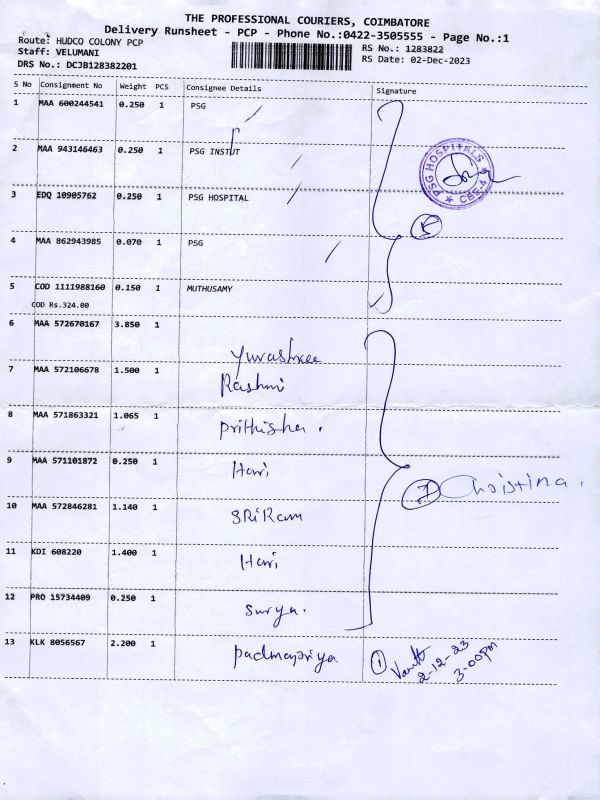 THE PROFESSIONAL COURIERS, COIMBATORE
Delivery Runsheet - PCP - Phone No.:0422-3505555 - Page No.:1
Route: HUDCO COLONY PCP
Staff: VELUMANI
DRS No.: DCJB128382201
RS No.: 1283822
RS Date: 02-Dec-2023
S No Consignment No Weight PCS Consignee Details Signature
1 MAA 600244541 0.250 1 PSG
2 MAA 943146463 0.250 1 PSG INSTUT
3 EDQ 10905762 0.250 1 PSG HOSPITAL
PSG HOSPITALS
★ CBE-4 ★
4 MAA 862943985 0.070 1 PSG
5 COD 1111988160 0.150 1 MUTHUSAMY
COD Rs.324.00
6 MAA 572670167 3.850 1 Yuvashree
7 MAA 572106678 1.500 1 Rashmi
8 MAA 571863321 1.065 1 Prithisha.
9 MAA 571101872 0.250 1 Hari
7 Christina.
10 MAA 572846281 1.140 1 SRiRam
11 KDI 608220 1.400 1 Hari
12 PRO 15734409 0.250 1 Surya.
13 KLK 8056567 2.200 1 Padmapriya
1
2-12-23
3-00pm